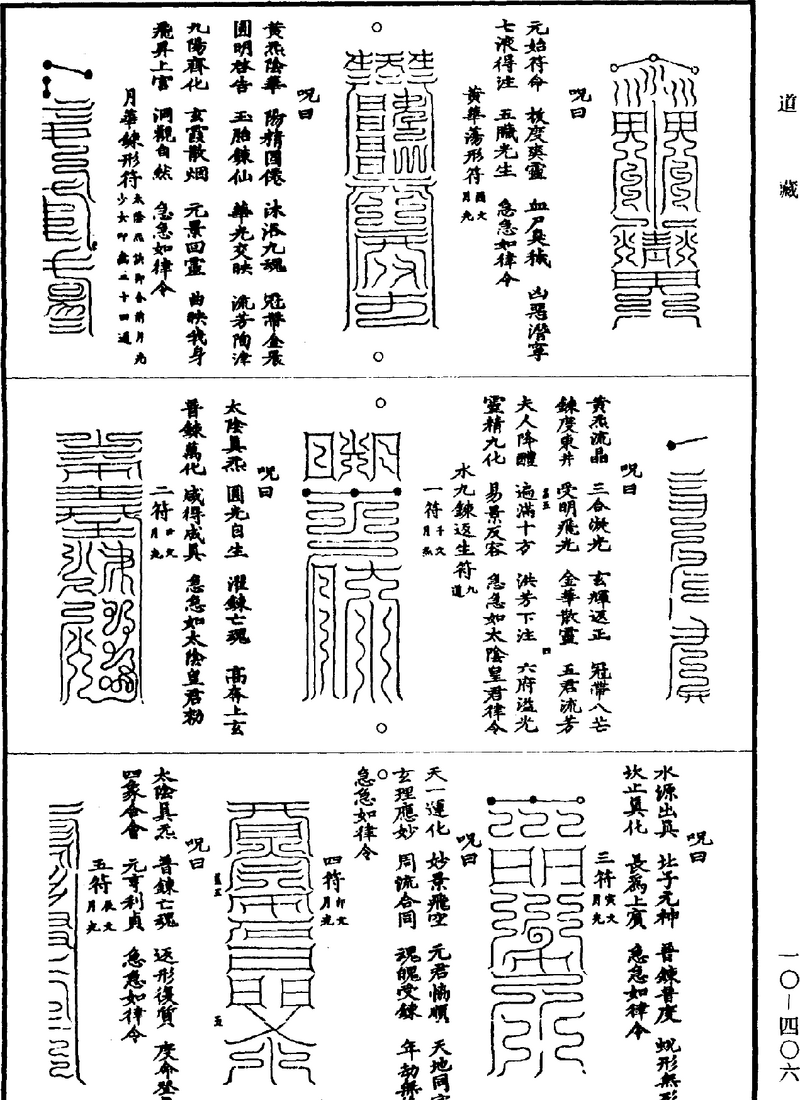 道藏
咒曰
元始符命 救度爽靈 血尸臭穢 凶惡潛寧
七液得注 五臟光生 急急如律令
黃華蕩形符
咒曰
黃炁陰華 陽精固倦 沐浴九魂 冠帶金晨
圓明啓告 玉胎鍊仙 華光交映 流芳陶津
九陽齊化 玄霞散烟 元景回靈 曲映我身
飛昇上宮 洞觀自然 急急如律令
月華鍊形符
咒曰
黃炁流晶 三合凝光 玄輝返正 冠帶八芒
鍊度東井 受明飛光 金華散靈 五君流芳
夫人降醴 遍滿十方 洪芳下注 六府溢光
靈精九化 易景反容 急急如太陰皇君律令
水九鍊返生符 九道
一符
咒曰
太陰真炁 圓光自生 濯鍊亡魂 高奔上玄
普鍊萬化 咸得成真 急急如太陰皇君勑
二符
咒曰
水源出真 壯子元神 普鍊普度 蛻形無形
坎止真化 長為上賓 急急如律令
三符 寅文月光
咒曰
天一運化 妙景飛空 元君協順 天地同
玄理應妙 周流合同 魂魄受鍊 年劫無
急急如律令
四符 卯文月光
咒曰
太陰真炁 普鍊亡魂 返形復質 度命登
四象合會 元亨利貞 急急如律令
五符 辰文月光
一〇—四〇六